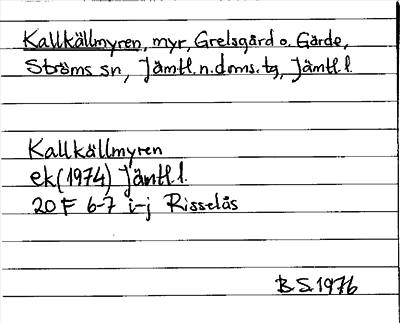 Kallkällmyren, myr, Grelsgård o. Gärde,
Ströms sn, Jämtl. n. doms. tg, Jämtl. l.
Kallkällmyren
ek (1974) Jämtl. l.
20 F 6-7 i-j Risselås
B S. 1976